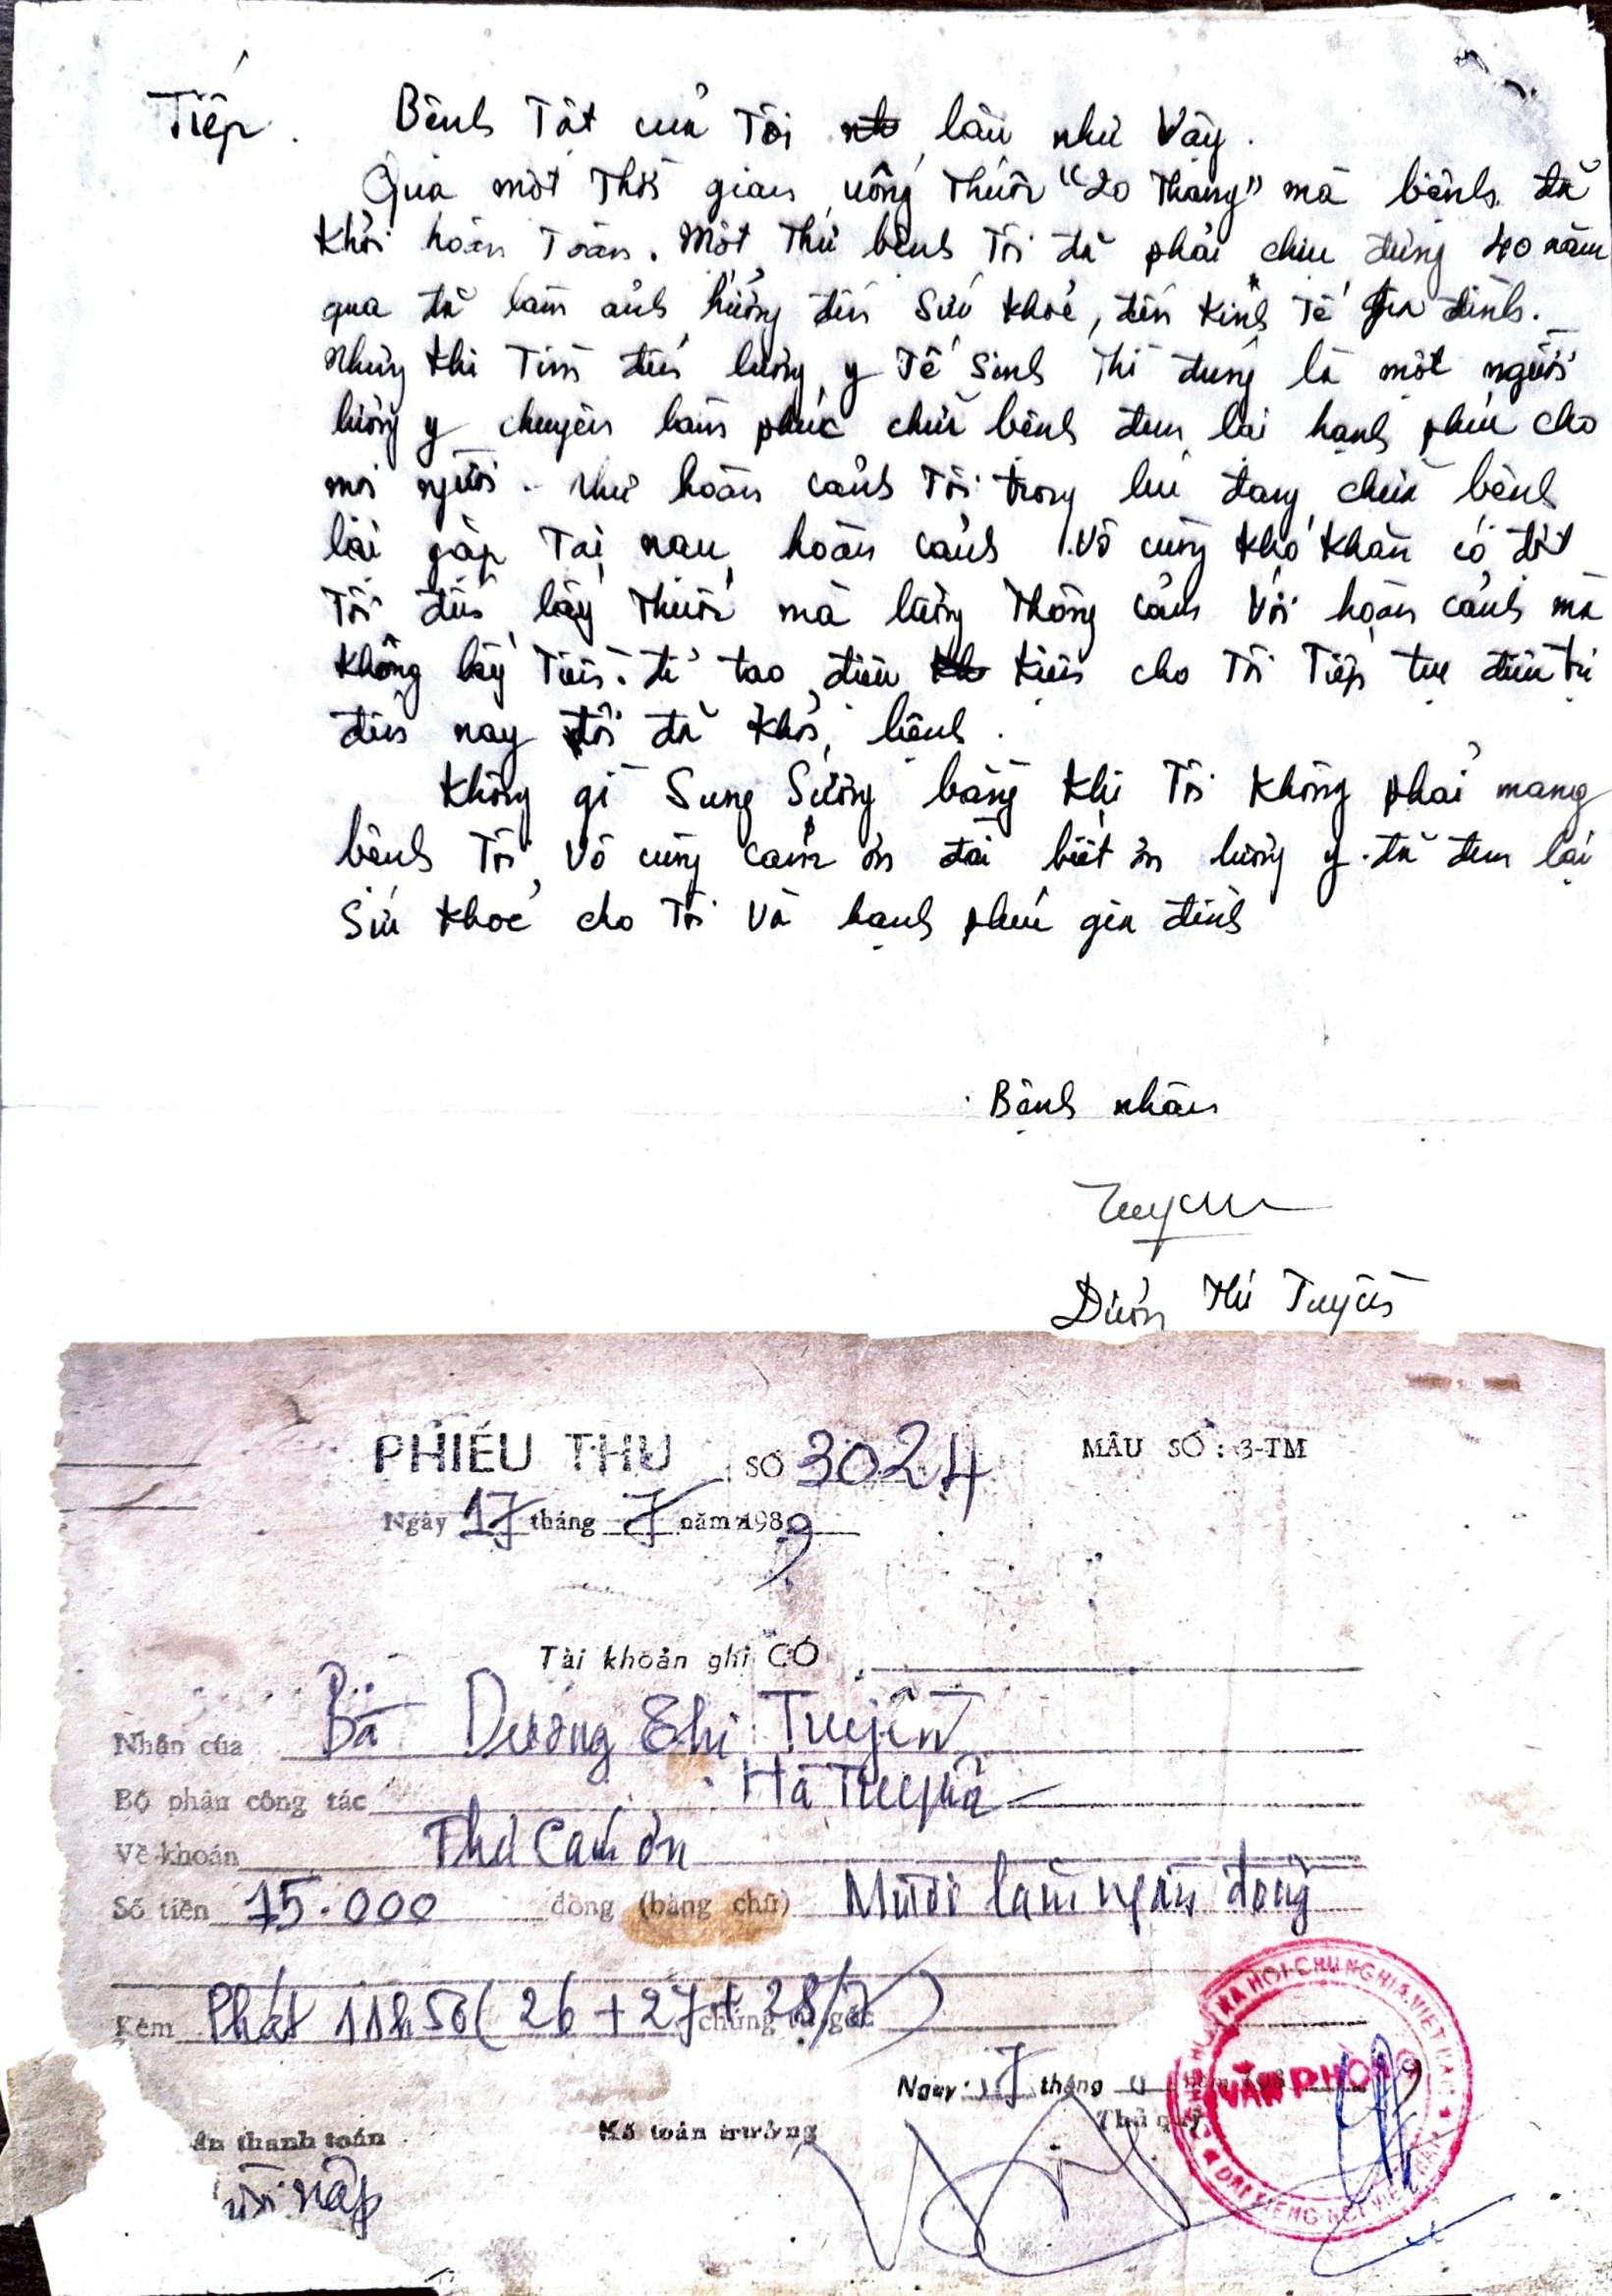 Tiếp. Bệnh Tật của Tôi lâu như Vậy.
Qua một Thời gian uống Thuốc "20 Tháng" mà bệnh đã
khỏi hoàn Toàn. Một Thứ bệnh Tôi đã phải chịu đựng 40 năm
qua đã làm ảnh hưởng đến Sức khoẻ, đến kinh Tế gia đình.
Nhưng khi Tìm đến lương y Tế Sinh Thì đúng là một người
lương y chuyên làm phúc chữa bệnh đem lại hạnh phúc cho
mọi người. Như hoàn cảnh Tôi trong lúc đang chữa bệnh
lại gặp Tai nạn hoàn cảnh Vô cùng khó khăn có đợt
Tôi đến lấy Thuốc mà lương Thông cảm Với hoàn cảnh mà
không lấy Tiền. để tạo điều kiện cho Tôi Tiếp tục điều trị
đến nay tôi đã khỏi bệnh.
Không gì Sung Sướng bằng khi Tôi không phải mang
bệnh Tôi Vô cùng cảm ơn đời biết ơn lương y. đã đem lại
Sức khoẻ cho Tôi Và hạnh phúc gia đình
Bệnh nhân
Tuyên
Dương Thị Tuyên
PHIẾU THU SỐ 3024 MẪU SỐ: 3-TM
Ngày 17 tháng 7 năm 1989
Tài khoản ghi CÓ
Nhận của Bà Dương Thị Tuyên
Bộ phận công tác Hà Tuyên
Về khoản Thư Cảm ơn
Số tiền 15.000 đồng (bằng chữ) Mười lăm ngàn đồng
Kèm Phát 11h50 (26 + 27 + 28/7) chứng từ gốc
Ngày 17 tháng năm 1989
ần thanh toán Kế toán trưởng Thủ quỹ
nộp
XÃ HỘI CHỦ NGHĨA VIỆT NAM
VĂN PHÒNG
ĐÀI TIẾNG NÓI VIỆT NAM